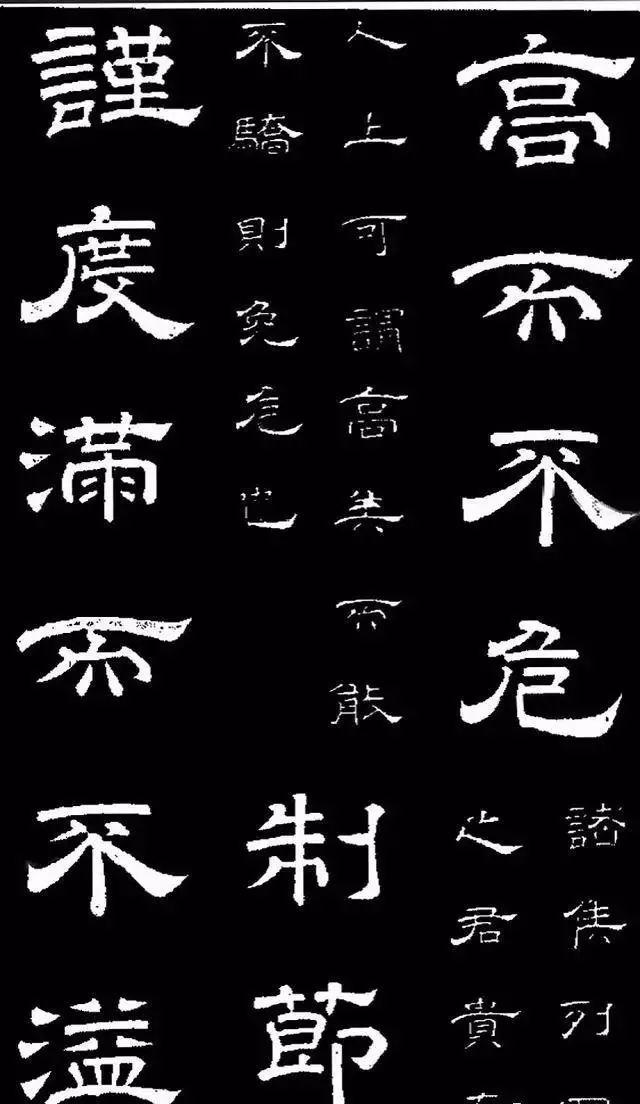 高而不危
諸侯列
之君貴
人上可謂高矣而能
不驕則免危也
制節
謹度滿而不溢